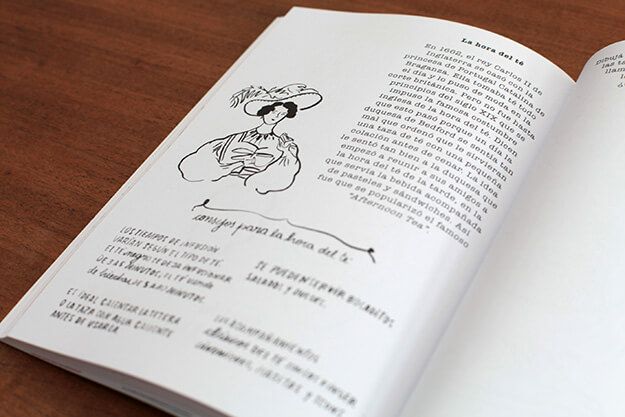 La hora del té
En 1662, el rey Carlos II de
Inglaterra se casó con la
princesa de Portugal Catalina de
Braganza. Ella tomaba té todo
el día y lo puso de moda en la
corte británica. Pero no fue hasta
principios del siglo XIX que se
impuso la famosa costumbre
inglesa de la hora del té. Dicen
que esto pasó porque un día la
duquesa de Bedford se sentía tan
mal que ordenó que le sirvieran
una taza de té con una pequeña
colación antes de cenar. La idea
le sentó tan bien a la duquesa que
empezó a reunir a sus amigos a
la hora del té de la tarde, en la
que servía la bebida acompañada
de pasteles y sándwiches. Así
fue que se popularizó el famoso
"Afternoon Tea".
consejos para la hora del té:
LOS TIEMPOS DE INFUSIÓN
VARÍAN SEGÚN EL TIPO DE TÉ.
EL TÉ negro SE DEJA INFUSIONAR
DE 3 A 5 MINUTOS, EL TÉ
MINUTOS.
ES IDEAL CALENTAR LA TETERA
O LA TAZA CON AGUA CALIENTE
ANTES DE USARLA
SE PUEDEN SERVIR BOCADITOS
SALADOS Y DULCES.
LOS ACOMPAÑAMIENTOS
DEL TÉ
DIBUJÁ
las té
llam